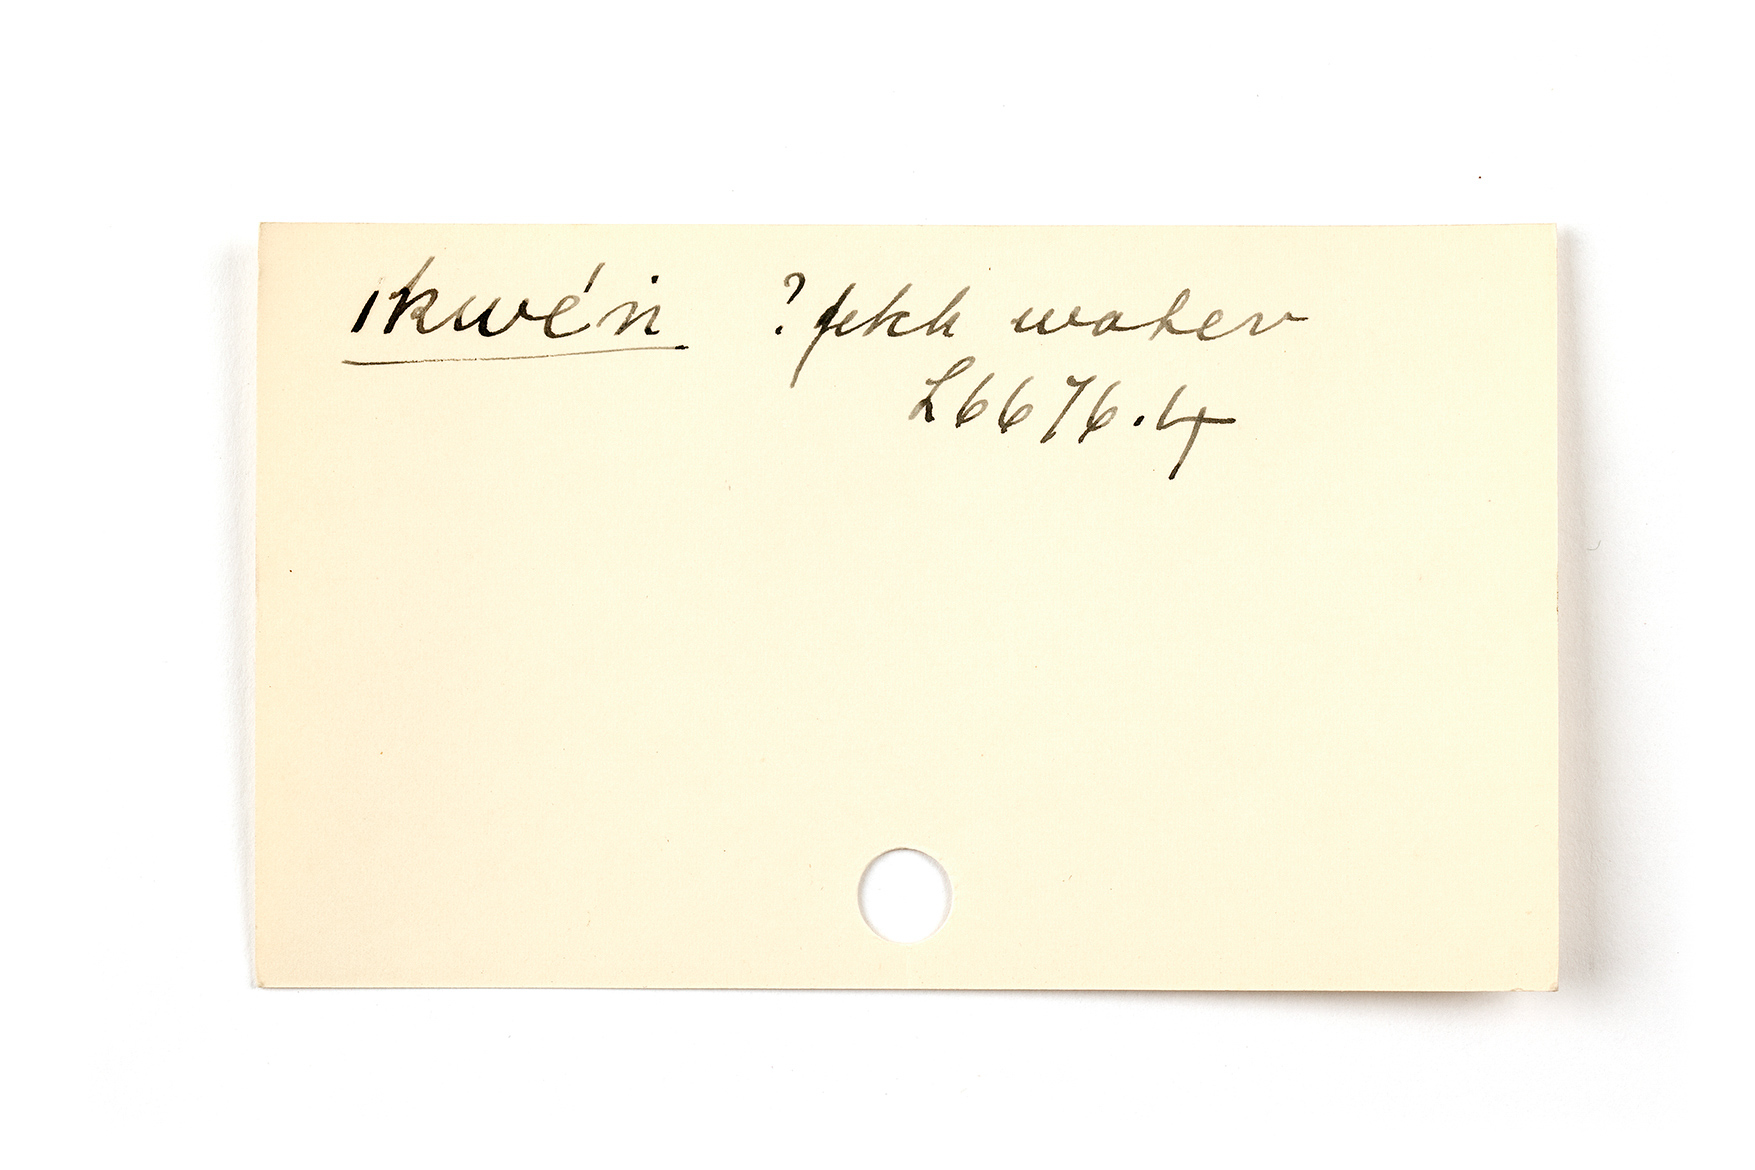 ǀkwéṅ ? fetch water
L6676.4